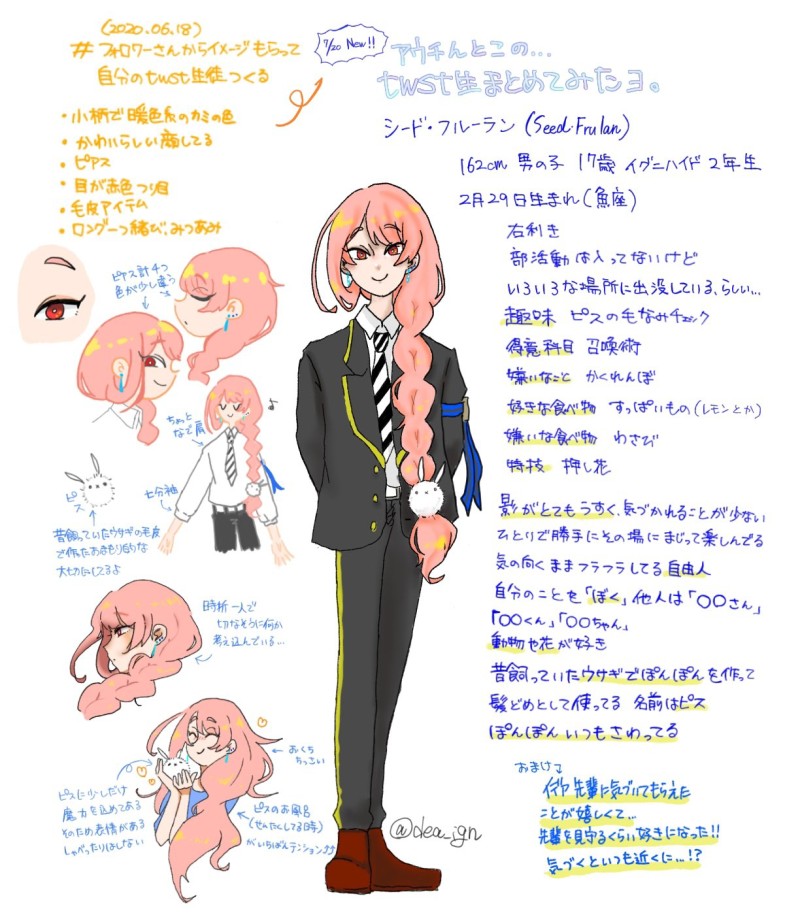 (2020.06.18)
#フォロワーさんからイメージもらって
自分のtwst生徒つくる
・小柄で暖色系のカミの色
・かわいらしい顔してる
・ピアス
・目が赤色つり目
・毛皮アイテム
・ロング一つ緒び、みつあみ
7/20 New!!
アウチんとこの…
twst生まとめてみたヨ。
シード・フルーラン (Seed・Frulan)
162cm 男の子 17歳 イグニハイド 2年生
2月29日生まれ(魚座)
右利き
部活動は入ってないけど
いろいろな場所に出没している、らしい…
趣味 ピスの毛なみチェック
得意科目 召喚術
嫌いなこと かくれんぼ
好きな食べ物 すっぱいもの(レモンとか)
嫌いな食べ物 わさび
特技 押し花
影がとてもうすく、気づかれることが少ない
ひとりで勝手にその場にまじって楽しんでる
気の向くままフラフラしてる自由人
自分のことを「ぼく」他人は「〇〇さん」
「〇〇くん」「〇〇ちゃん」
動物や花が好き
昔飼っていたウサギでぽんぽんを作って
髪どめとして使ってる 名前はピス
ぽんぽんいつもさわってる
おまけ↓
イデア先輩に気づいてもらえた
ことが嬉しくて…
先輩を見守るくらい好きになった!!
気づくといつも近くに…!?
ピアス計4つ
色が少し違う
ちょっと
なで肩
七分袖
ピス
昔飼っていたウサギの毛皮
で作ったおまもり的な
大切にしてるよ
時折一人で
切なそうに何か
考え込んでいる…
おくち
ちっさい
ピスに少しだけ
魔力を込めてある
そのため表情がある
しゃべったりはしない
ピスのお風呂
(せんたくしてる時)
がいちばんテンション⤴⤴
@dea_ign